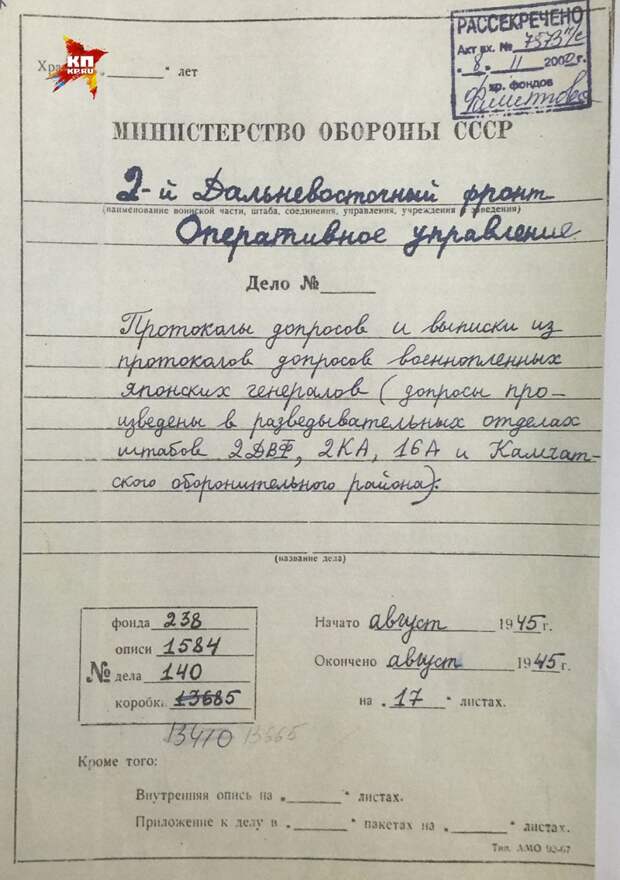 КП
KP.RU
РАССЕКРЕЧЕНО
Акт вх. № 7573/с
"8" 11 2000 г.
хр. фондов
" " лет
МИНИСТЕРСТВО ОБОРОНЫ СССР
2-й Дальневосточный фронт
(наименование воинской части, штаба, соединения, управления, учреждения заведения)
Оперативное управление
Дело №
Протоколы допросов и выписки из
протоколов допросов военнопленных
японских генералов (допросы про-
изведены в разведывательных отделах
штабов 2ДВФ, 2КА, 16А и Камчат-
ского оборонительного района).
(название дела)
№
фонда 238
описи 1584
дела 140
коробк. 13685
13470 13665
Начато август 1945 г.
Окончено август 1945 г.
на "17" листах.
Кроме того:
Внутренняя опись на " " листах.
Приложение к делу в " " пакетах на " " листах.
Тип. АМО 92-67